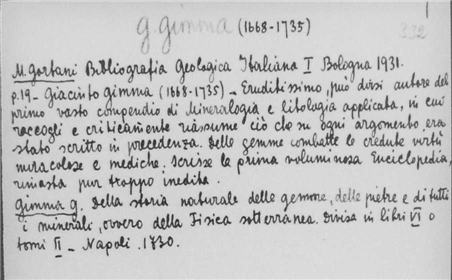 G. Gimma (1668-1735)
1
332
M. Gortani Bibliografia Geologica Italiana I Bologna 1931.
p.19 - Giacinto Gimma (1668-1735) - Eruditissimo, può dirsi autore del
primo vasto compendio di Mineralogia e litologia applicata, in cui
raccogli e criticamente riassume ciò che su ogni argomento era
stato scritto in precedenza. Delle gemme combatte le credute virtù
miracolose e mediche. Scrisse la prima voluminosa Enciclopedia,
rimasta pur troppo inedita.
Gimma G. Della storia naturale delle gemme, delle pietre e di tutti
i minerali, ovvero della Fisica sotterranea. Divisa in libri VI o
tomi II - Napoli. 1730.